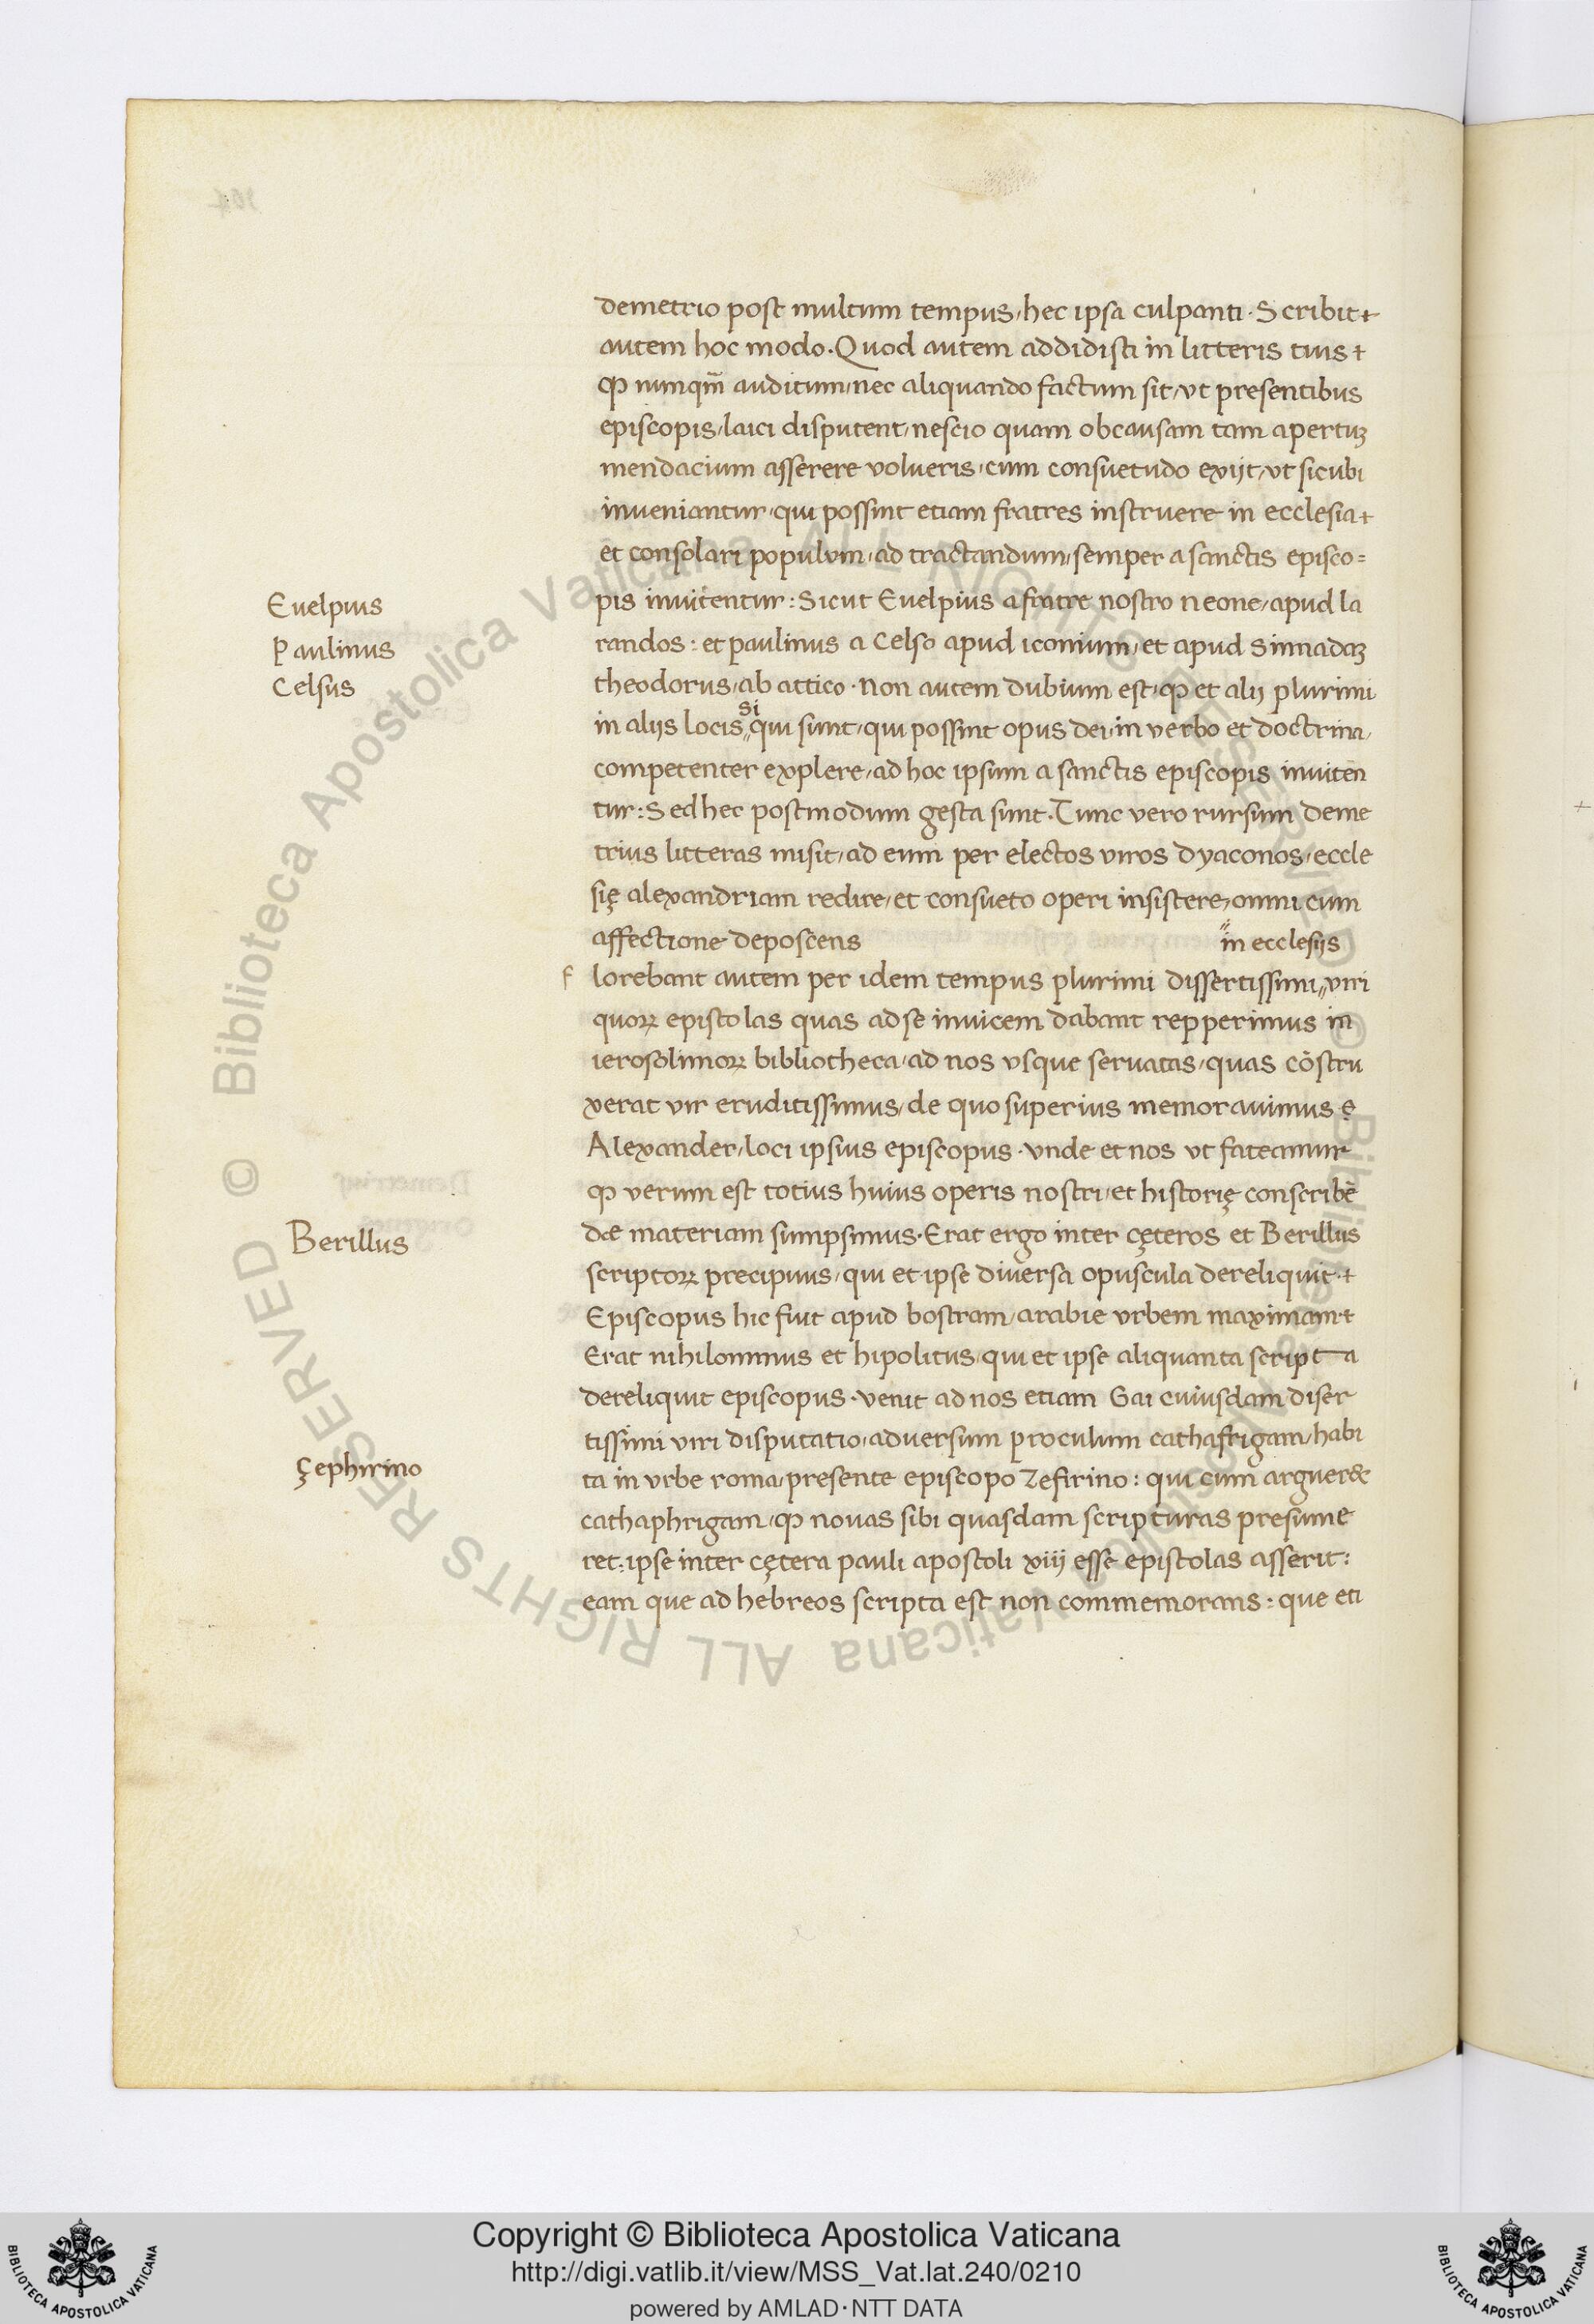 demetrio post multum tempus, hec ipsa culpanti. Scribit
autem hoc modo. Quod autem addidisti in litteris tuis
ꝙ nunqm̄ auditum, nec aliquando factum sit, ut presentibus
episcopis, laici disputent, nescio quam obcausam tam apertuꝫ
mendacium asserere volueris, cum consuetudo exijt, ut sicubi
inveniantur, qui possint etiam fratres instruere in ecclesia
et consolari populum, ad tractandum, semper a sanctis episco=
Euelpius
pis invitentur: Sicut Euelpius a fratre nostro neone, apud la
Paulinus
randos: et paulinus a Celso apud iconium, et apud Sinnadaꝫ
Celsus
theodorus, ab attico. Non autem dubium est, ꝙ et alij plurimi
si
in alijs locis, qui sunt, qui possint opus dei, in verbo et doctrina,
competenter explere, ad hoc ipsum a sanctis episcopis inviten
tur: Sed hec postmodum gesta sunt. Tunc vero rursum deme
trius litteras misit, ad eum per electos viros dyaconos, eccle
się alexandriam redire, et consueto operi insistere, omni cum
affectione deposcens
in ecclesijs
f lorebant autem per idem tempus plurimi dissertissimi, viri
quoꝝ epistolas quas ad se invicem dabant repperimus in
ierosolimoꝝ bibliotheca, ad nos usque servatas, quas cōstru
xerat vir eruditissimus, de quo superius memoravimus
Alexander, loci ipsius episcopus. unde et nos ut fateamur
ꝙ verum est totius huius operis nostri, et historię conscribē
dæ materiam sumpsimus. Erat ergo inter cęteros et Berillus
Berillus
scriptoꝝ precipuus, qui et ipse diversa opuscula dereliquit.
Episcopus hic fuit apud bostram, arabie urbem maximam
Erat nihilominus et hipolitus, qui et ipse aliquanta scripta
dereliquit episcopus. venit ad nos etiam Gai cuiusdam diser
tissimi viri disputatio, adversum proculum cathafrigam, habi
çephirino
ta in urbe roma, presente episcopo Zefirino: qui cum argueret
cathaphrigam, ꝙ novas sibi quasdam scripturas presume
ret: ipse inter cętera pauli apostoli xiij esse epistolas asserit:
eam que ad hebreos scripta est non commemorans: que eti
Copyright © Biblioteca Apostolica Vaticana
http://digi.vatlib.it/view/MSS_Vat.lat.240/0210
powered by AMLAD·NTT DATA
BIBLIOTECA APOSTOLICA VATICANA
BIBLIOTECA APOSTOLICA VATICANA
© Biblioteca Apostolica Vaticana ALL RIGHTS RESERVED © Biblioteca Apostolica Vaticana ALL RIGHTS RESERVED